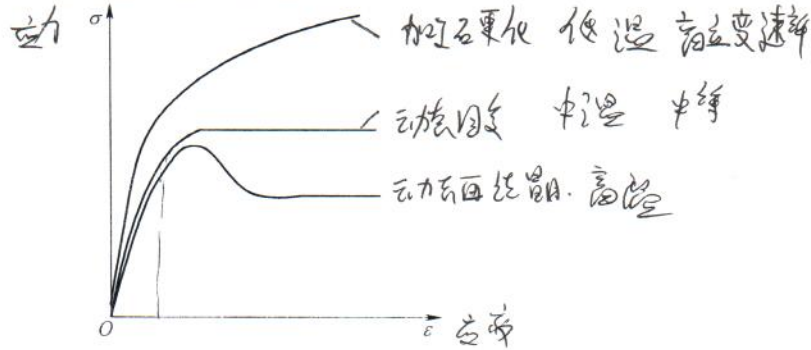 应力 σ 加工硬化 低温 高应变速率
动态回复 中温 中等
动态再结晶. 高温
O ε 应变